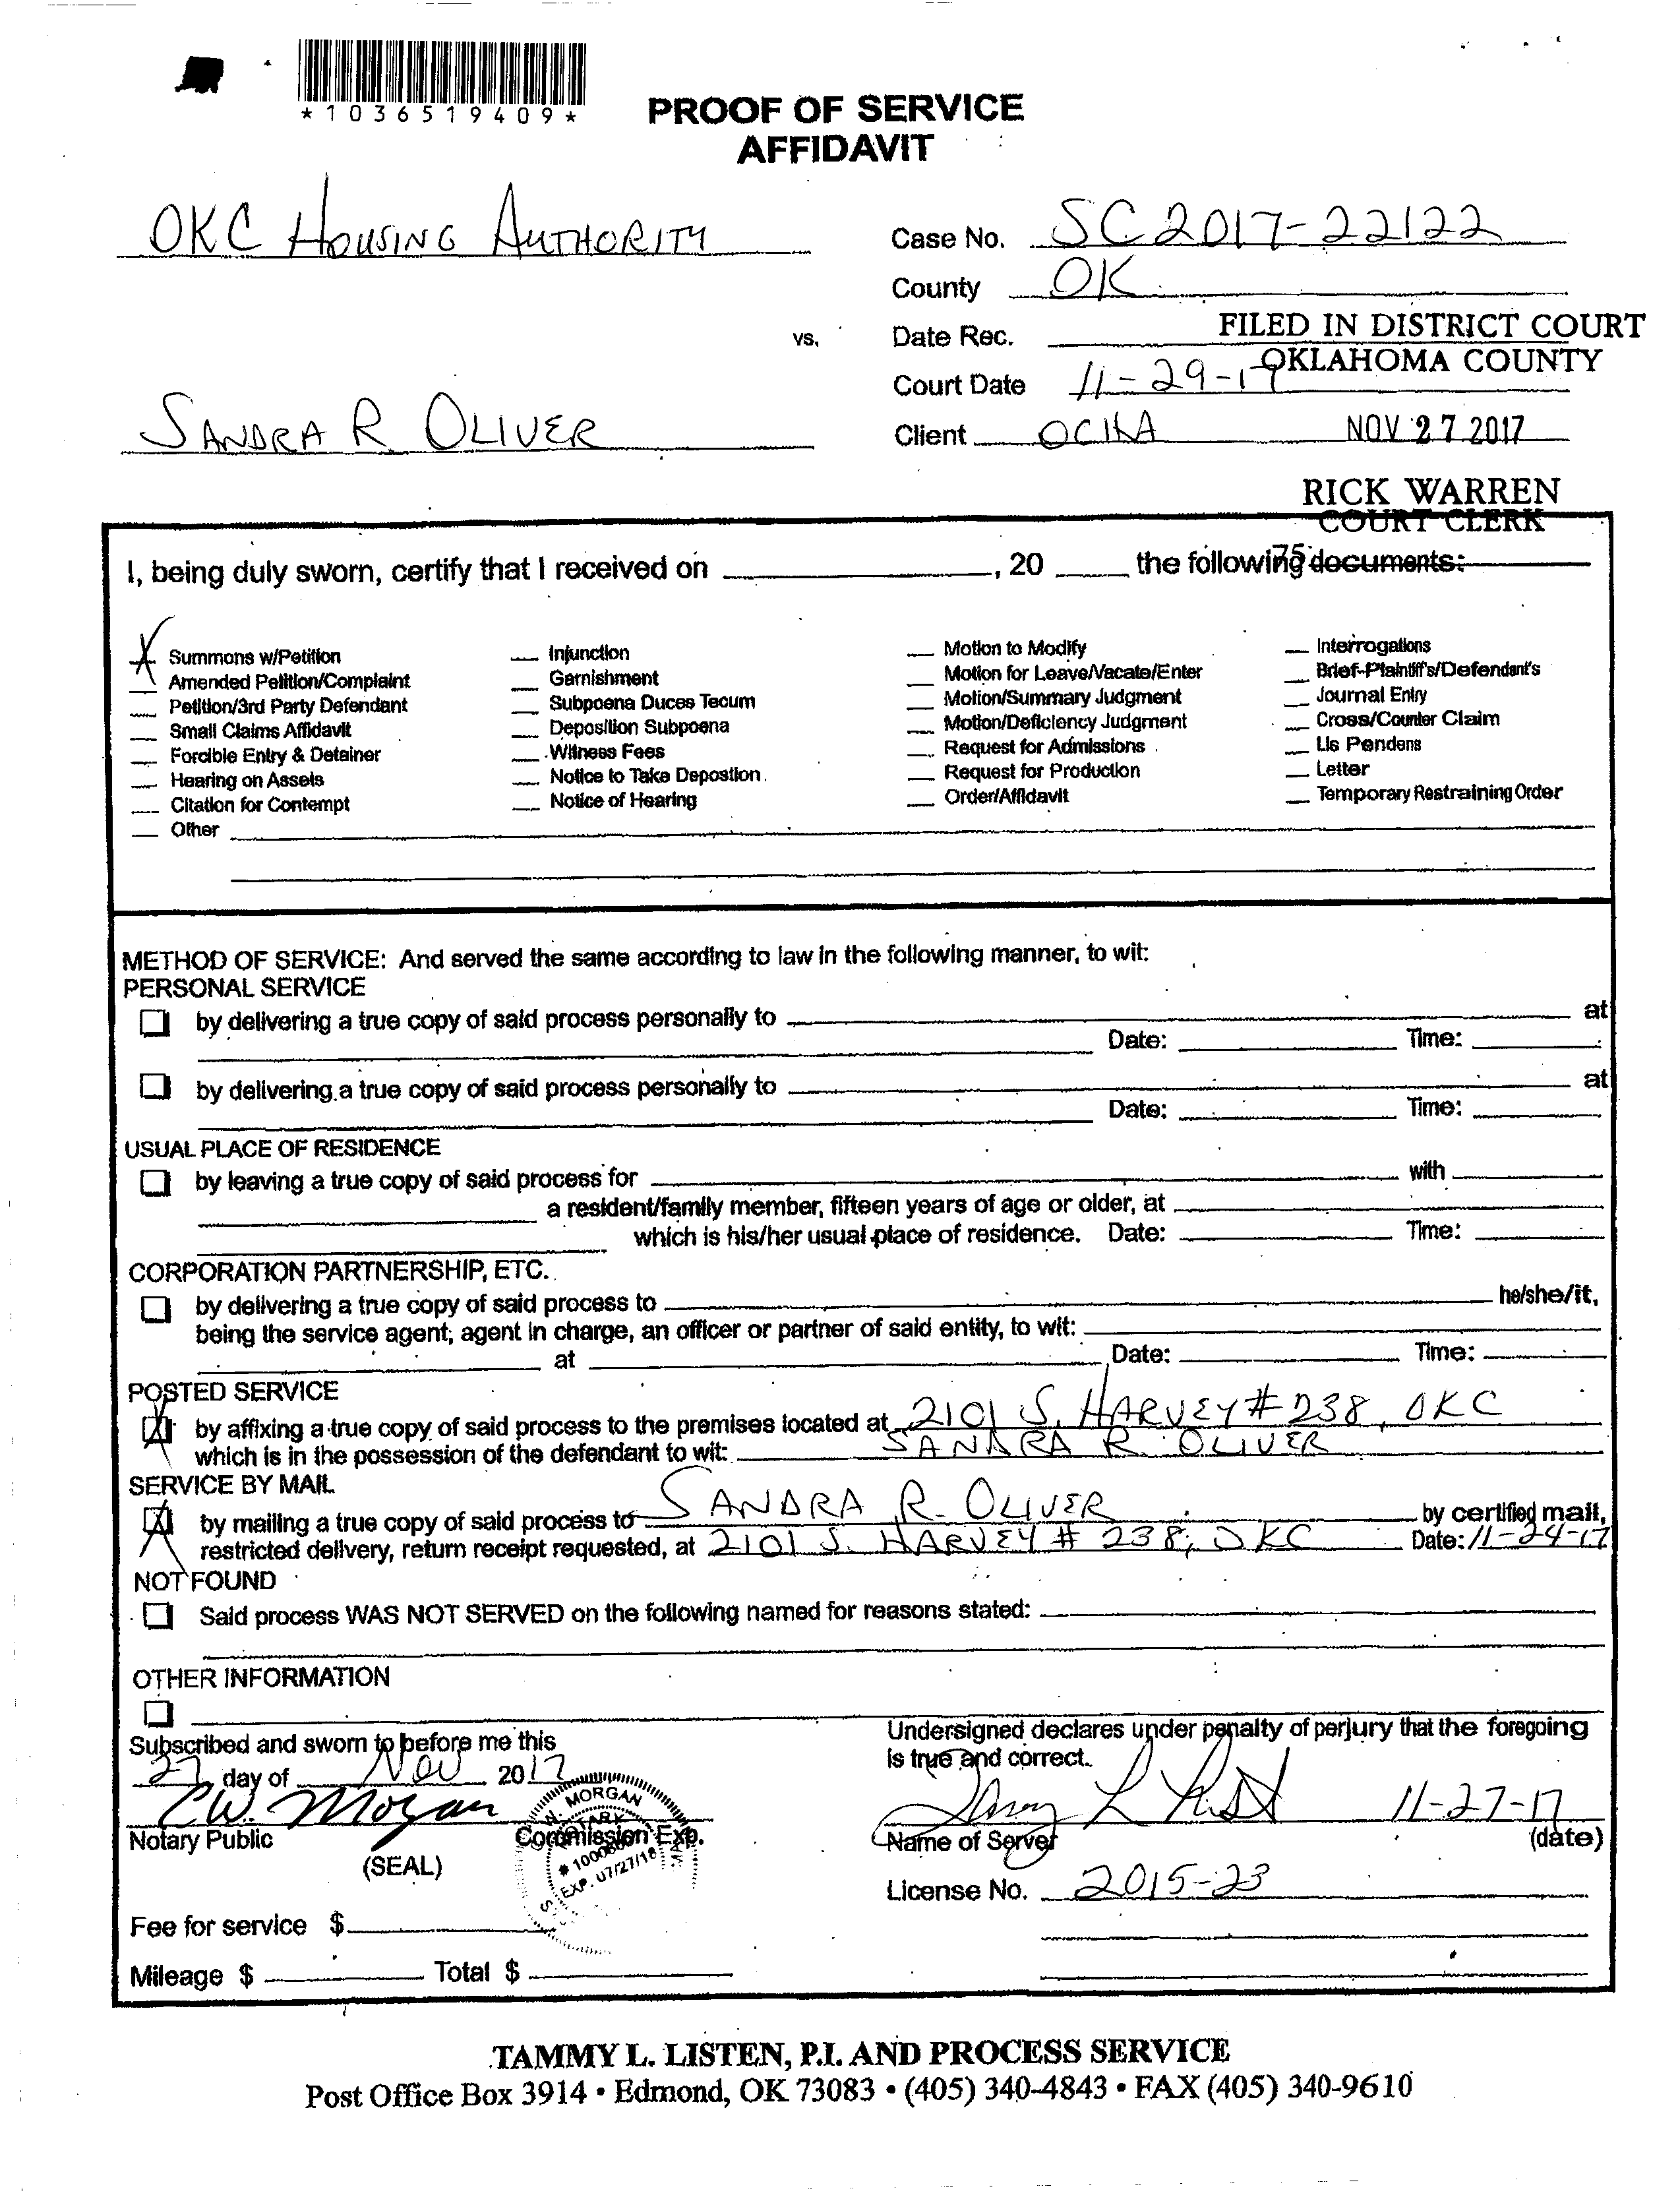 *1036519409*
PROOF OF SERVICE
AFFIDAVIT
OKC HOUSING AUTHORITY
Case No. SC2017-22122
County OK
vs.
Date Rec.
FILED IN DISTRICT COURT
OKLAHOMA COUNTY
Court Date 11-29-17
SANDRA R. OLIVER
Client OCHA
NOV 27 2017
RICK WARREN
COURT CLERK
75
I, being duly sworn, certify that I received on ____, 20 ____ the following documents:
X Summons w/Petition
Amended Petition/Complaint
Petition/3rd Party Defendant
Small Claims Affidavit
Forcible Entry & Detainer
Hearing on Assets
Citation for Contempt
Other
Injunction
Garnishment
Subpoena Duces Tecum
Deposition Subpoena
Witness Fees
Notice to Take Depostion
Notice of Hearing
Motion to Modify
Motion for Leave/Vacate/Enter
Motion/Summary Judgment
Motion/Deficiency Judgment
Request for Admissions
Request for Production
Order/Affidavit
Interrogations
Brief-Plaintiff's/Defendant's
Journal Entry
Cross/Counter Claim
Lis Pendens
Letter
Temporary Restraining Order
METHOD OF SERVICE: And served the same according to law in the following manner, to wit:
PERSONAL SERVICE
by delivering a true copy of said process personally to ____ at
Date: ____ Time: ____
by delivering a true copy of said process personally to ____ at
Date: ____ Time: ____
USUAL PLACE OF RESIDENCE
by leaving a true copy of said process for ____ with ____
a resident/family member, fifteen years of age or older, at ____
which is his/her usual place of residence. Date: ____ Time: ____
CORPORATION PARTNERSHIP, ETC.
by delivering a true copy of said process to ____ he/she/it,
being the service agent, agent in charge, an officer or partner of said entity, to wit: ____
at ____ Date: ____ Time: ____
POSTED SERVICE
X by affixing a true copy of said process to the premises located at 2101 S. HARVEY #238, OKC
which is in the possession of the defendant to wit: SANDRA R OLIVER
SERVICE BY MAIL
X by mailing a true copy of said process to SANDRA R. OLIVER by certified mail,
restricted delivery, return receipt requested, at 2101 S. HARVEY # 238, OKC Date: 11-24-17
NOT FOUND
Said process WAS NOT SERVED on the following named for reasons stated: ____
OTHER INFORMATION
Subscribed and sworn to before me this
27 day of Nov 2017
C.W. Morgan
Notary Public
(SEAL)
Commission Exp.
W. MORGAN
NOTARY
EXP. 07/27/18
Fee for service $
Mileage $ ____ Total $ ____
Undersigned declares under penalty of perjury that the foregoing
is true and correct.
11-27-17
Name of Server
(date)
License No. 2015-23
TAMMY L. LISTEN, P.I. AND PROCESS SERVICE
Post Office Box 3914 • Edmond, OK 73083 • (405) 340-4843 • FAX (405) 340-9610